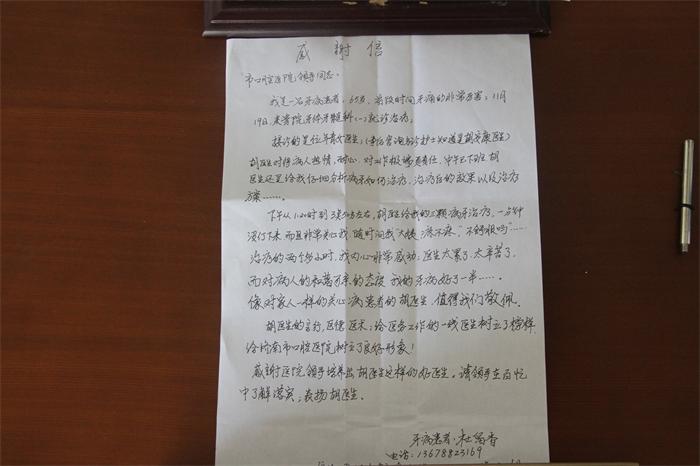 感謝信
市口腔医院领导同志:
我是一名牙病患者,65岁,前段时间牙痛的非常厉害,11月
19日,来贵院牙体牙髓科(一)就诊治疗。
接诊的是位年青女医生,(事后咨询护士知道是胡医生)
胡医生对待病人热情,耐心,对工作极端负责任,中午已下班胡
医生还是给我仔细分析病未如何治疗,治疗后的效果以及治疗
方案……。
下午从1:20时到3:50左右,胡医生给我的二颗病牙治疗,一分钟
没停下来,而且非常关心我,随时间我"大姨 疼不疼","不舒服吗"……
治疗的两个多小时,我内心非常感动,医生太累了,太辛苦了,
而对病人的和蔼可亲的态度 我的牙病好了一半……。
像对家人一样的关心病患者的胡医生,值得我们敬佩。
胡医生的言行,医德 医术;给医务工作的一线医生树立了榜样,
给济南市口腔医院树立了良好形象!
感谢医院领导培养出胡医生这样的好医生。请领导在百忙
中了解落实;表扬胡医生。
牙病患者·杜留香
电话:13678823169